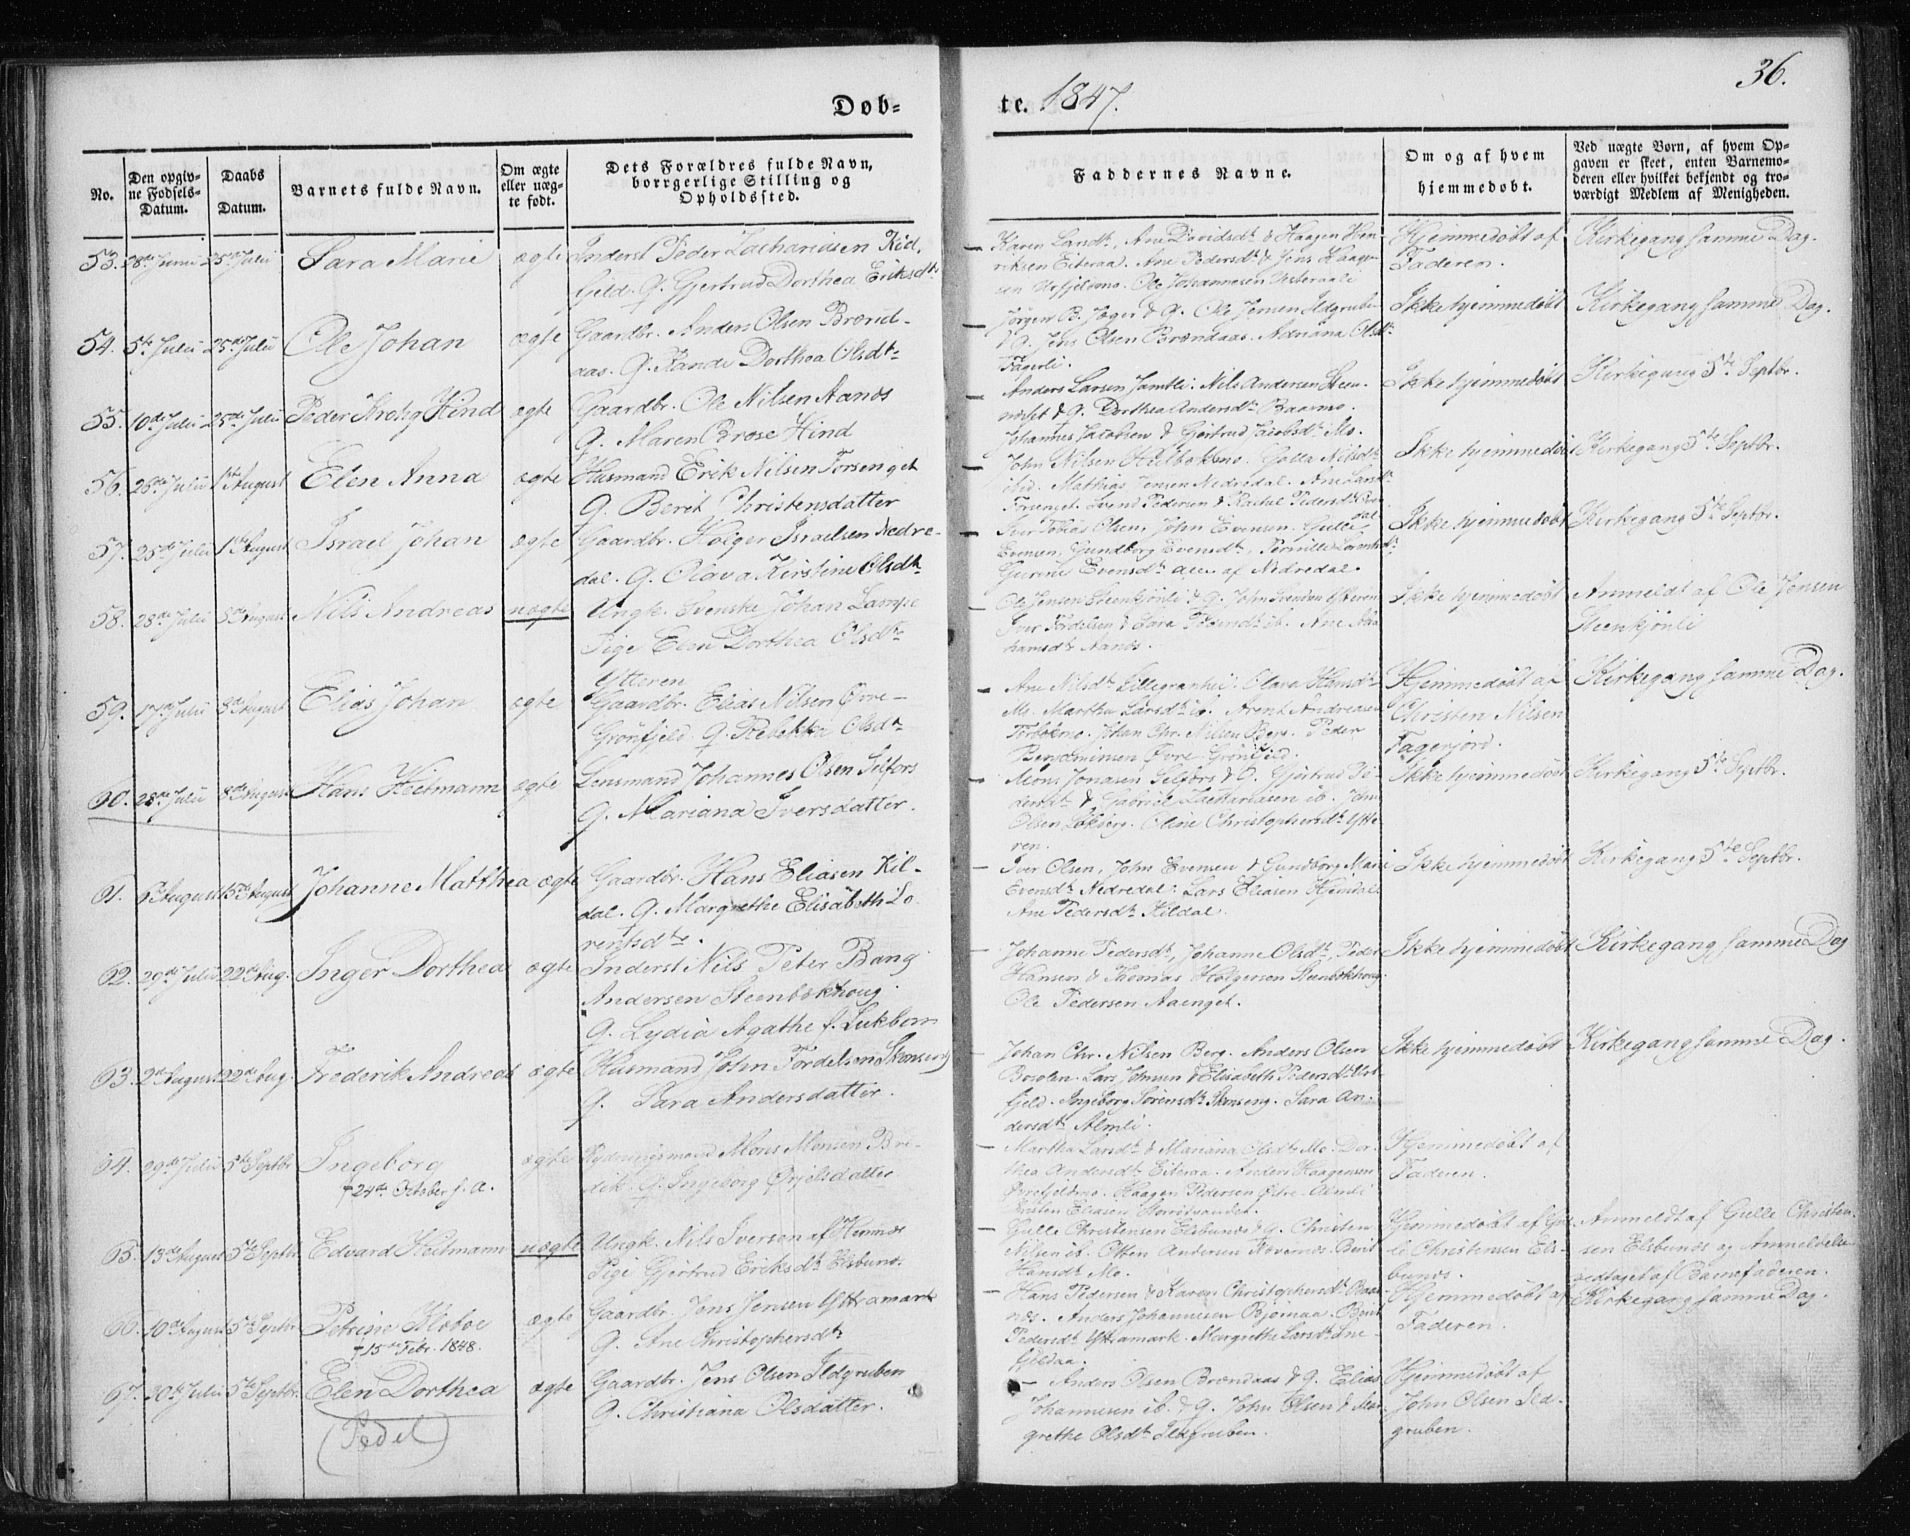 36.
Døb-
te. 1847.
No.
Den opgiv-
ne Fødsels-
Datum.
Daabs
Datum.
Barnets fulde Navn.
Om ægte
eller uæg-
te født.
Dets Forældres fulde Navn,
borrgerlige Stilling og
Opholdssted.
Faddernes Navne.
Om og af hvem
hjemmedøbt.
Ved uægte Børn, af hvem Op-
gaven er skeet, enten Barnemo-
deren eller hvilket bekjendt og tro-
værdigt Medlem af Menigheden.
53. 28de Juni 25de Julii Sara Marie ægte Inderst Peder Zachariasen Kid,
fjeld. Q. Gjertrud Dorthea Eriksdtr
Karen Larsdtr, Ane Davidsdtr & Haagen Hen-
riksen Eiteraa. Ane Pedersdtr & Jens Haagen-
sen Urfjeldmo. Ole Johannesen Vesteraali
Hjemmedøbt af
Faderen.
Kirkegang samme Dag.
54. 5te Julii 25de Julii Ole Johan ægte Gaardbr. Anders Olsen Brænd-
aas. Q. Rande Dorthea Olsdtr
Jørgen B. Jæger & Q. Ole Jensen Ildgruben
& Q. Jens Olsen Brændaas. Adriana Olsdtr
Fagerli.
Ikke hjemmedøbt
Kirkegang samme Dag.
55. 10de Julii 25de Julii Peder Krohg Hind ægte Gaardbr. Ole Nilsen Aanes
Q. Maren Brose Hind
Anders Larsen Jamtli. Nils Andersen Steen-
neset & Q. Dorthea Andersdtr Baasmo.
Johannes Jacobsen & Gjertrud Jacobsdtr Mo.
Ikke hjemmedøbt
Kirkegang 5te Septbr.
56. 26de Julii 1ste August Elen Anna ægte Husmand Erik Nilsen Forsenget
Q. Beret Christensdatter
John Nilsen Hulbekmo. Golla Nilsdtr
ibid. Mathias Jensen Nedredal. Ane Larsdtr
Svend Pedersen & Rachel Pedersdtr
Ikke hjemmedøbt
Kirkegang 5te Septbr.
57. 25de Julii 1ste August Israel Johan ægte Gaardbr. Holger Israelsen Nedre-
dal. Q. Olava Kirstine Olsdtr
Iver Tobias Olsen, John Evensen. Gulle
Evensen, Gundborg Evensdtr, Pernille Lorentsdtr
Gurine Evensdtr alle af Nedredal.
Ikke hjemmedøbt
Kirkegang 5te Septbr.
58. 28de Julii 8de August Nils Andreas uægte Ungk. Svenske Johan Lampe
Pige Elen Dorthea Olsdtr
Ytteren
Ole Jensen Steenkjønli & Q. John Svendsen Ytteren
Iver Tordelsen & Sara ib. Ane Abra
hamsdtr Aanes.
Ikke hjemmedøbt
Anmeldt af Ole Jensen
Steenkjønli
59. 17de Julii 8de August Elias Johan ægte Gaardbr. Elias Nilsen Øvre-
Grønfjeld Q. Rebekka Olsdtr
Ane Nilsdtr Lillegranhei. Olava Hansdtr
Mo. Martha Larsdtr ib. Arent Andreasen
Johan Chr. Nilsen Berg. Peder
Benjaminsen Øvre-Grønfjeld.
Hjemmedøbt af
Christen Nilsen
Fagerjord.
Kirkegang samme Dag.
60. 28de Julii 8de August Hans Heitmann ægte Lensmand Johannes Olsen Selfors
Q. Mariana Iversdatter.
Mons Jonasen Selfors & Q. Gjertrud Pe-
dersdtr & Gabriel Zachariasen ib. John
Olsen Løkberg. Oline Christophersdtr Ytte-
ren.
Ikke hjemmedøbt
Kirkegang 5te Septbr.
61. 6te August 15de August Johanne Matthea ægte Gaardbr. Hans Eliasen Kil-
dal. Q. Margrethe Elisabeth Lo
rentsdtr.
Iver Olsen, John Evensen & Gundborg Marie
Evensdtr Nedredal. Lars Eliasen Hjemdal
Ane Pedersdtr Kildal.
Ikke hjemmedøbt
Kirkegang 5te Septbr.
62. 29de Julii 22de Aug. Inger Dorthea ægte Inderst Nils Peter Bang
Andersen Steenbekhoug
Q. Lydia Agathe f. Lukborn
Johanne Pedersdtr, Johanne Olsdtr, Peder
Hansen & Thomas Holgersen Steenbekhoug.
Ole Pedersen Aaenget.
Ikke hjemmedøbt
Kirkegang samme Dag
63. 2de August 22de Aug. Frederik Andreas ægte Husmand John Tordelsen Skonseng
Q. Sara Andersdatter.
Johan Chr. Nilsen Berg. Anders Olsen
Bosolen. Lars Johnsen & Elisabeth Pedersdtr Urt-
fjeld. Ingeborg Sørensdtr Skonseng. Sara An-
dersdtr Almli.
Ikke hjemmedøbt
Kirkegang samme Dag.
64. 29de Julii 5te Septbr Ingeborg ægte Rydningsmand Mons Monsen Bre-
dik. Q. Ingeborg Ørjelsdatter
† 24de October s. a.
Martha Larsdtr & Mariana Olsdtr Mo. Dor-
thea Andersdtr Eiteraa. Anders Haagensen
Urfjeldmo. Haagen Pedersen Øvre-Almli
Kristen Eliasen
Hjemmedøbt af
Faderen.
65. 13de August 5te Septbr. Edvard Heitmann uægte Ungk. Nils Iversen af Hemnes
Pige Gjertrud Eriksdtr Elsbunes.
Gulle Christensen Elsbunes & Q. Christen
Nilsen ib. Otten Andersen Berit
Hansdtr Mo.
Hjemmedøbt af Gul-
le Christensen Els-
bunes.
Anmeldt af Gulle Christen-
sen Elsbunes og Anmeldelse
vedtaget af Barnefaderen.
66. 10de August 5te Septbr. Petrine Hoboe ægte Gaardbr. Jens Jensen Yttramark
Q. Ane Christophersdtr
† 15de Febr. 1848.
Hans Pedersen & Karen Christophersdtr Baas-
nes. Anders Johannesen Bjørnaa. Berit
Pedersdtr Yttramark. Margrethe Larsdtr Sne-
fjeldaa.
Hjemmedøbt af
Faderen.
Kirkegang samme Dag.
67. 30de Julii 5te Septbr. Elen Dorthea ægte Gaardbr. Jens Olsen Ildgruben
Q. Christiana Olsdatter.
(Pedel)
Anders Olsen Brændaas & Q. Elias
Johannesen ib. & Q. John Olsen & Mar-
grethe Olsdtr Ildgruben.
Hjemmedøbt af
John Olsen Ild-
gruben.